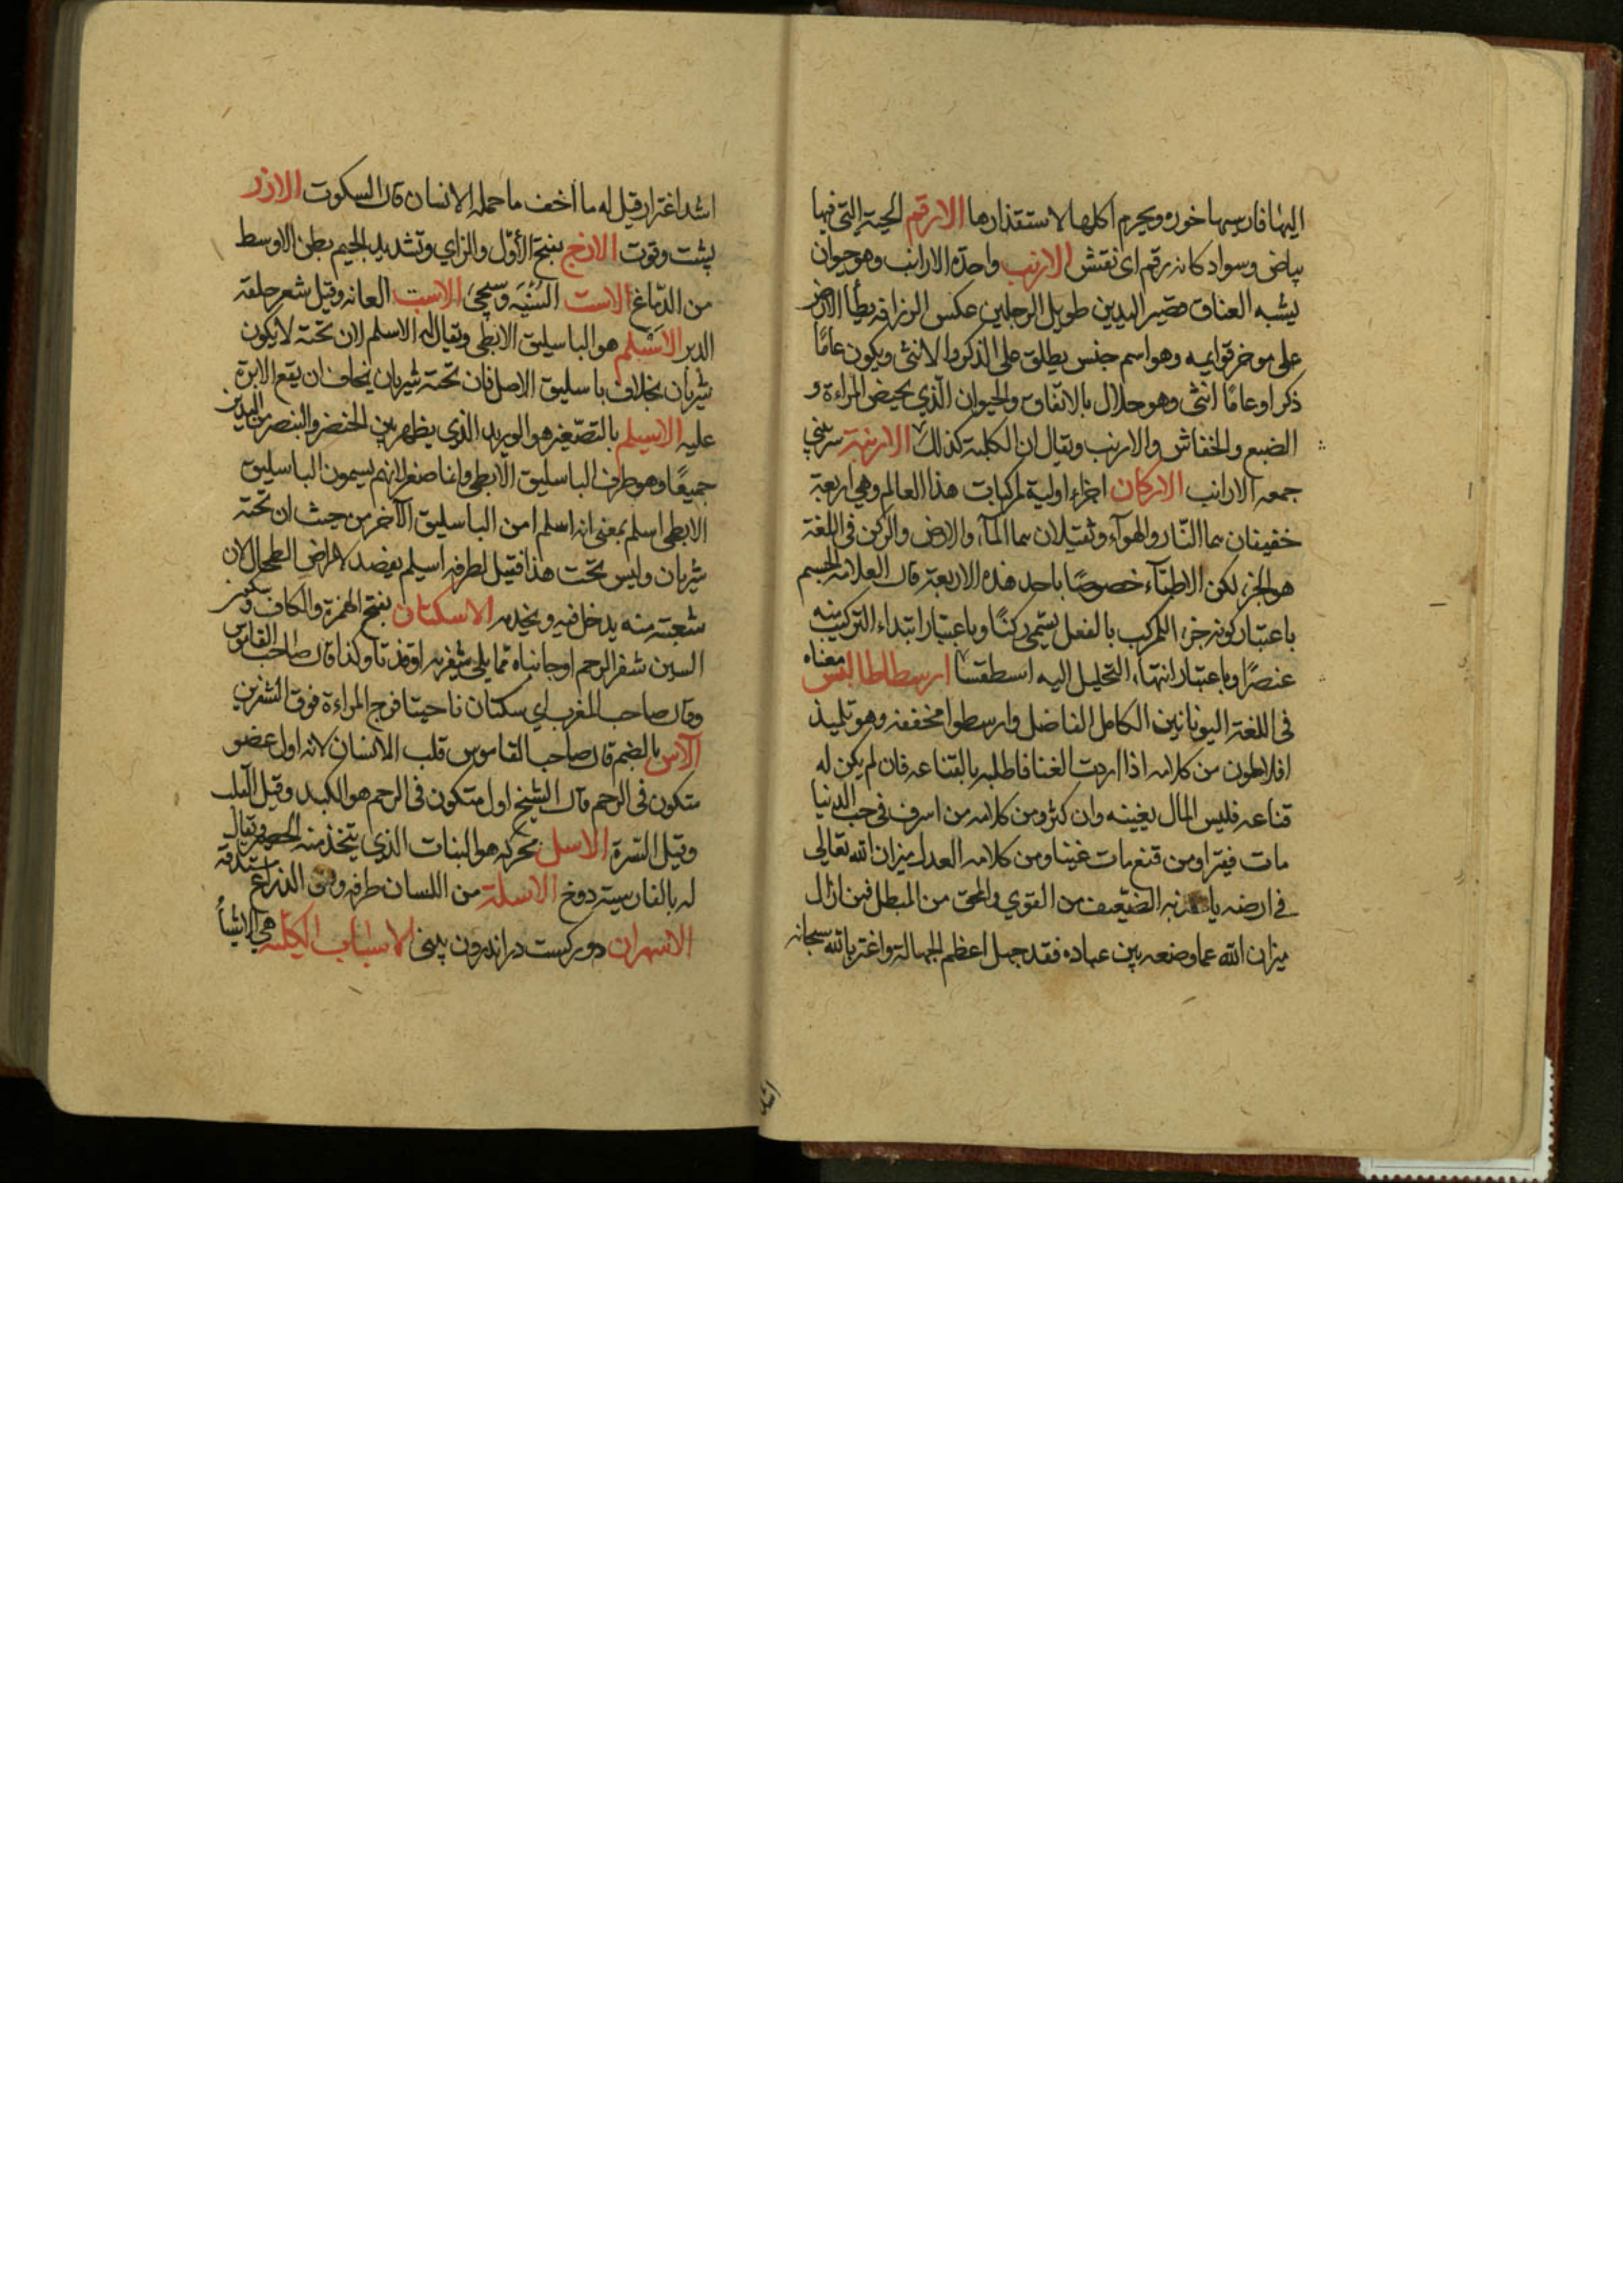 اليها فارسيها خوره ويحرم اكلها لاستقذارها الارقم الحية التي فيها
بياض وسواد كانه رقم اى نقش الارنب واحدة الارانب وهو حيوان
يشبه العناق قصير اليدين طويل الرجلين عكس الزرافة يطأ الارض
على موخر قوايمه وهو اسم جنس يطلق على الذكر والانثى ويكون عامًا
ذكرا وعامًا انثى وهو حلال بالاتفاق والحيوان الذي يحيض المراءة و
الضبع والخفاش والارنب ويقال ان الكلبة كذلك الارنبة سر بيني
جمعه الارانب الاركان اجزاء اولية لمركبات هذا العالم وهي اربعة
خفيفان هما النّار والهوآء وثقيلان هما المآء والارض والركن فى اللغة
هو الجزء لكن الاطبّآء خصوصًا باحد هذه الاربعة قال العلامه الجسم
باعتبار كونه جزء المركب بالفعل يسمى ركنًا وباعتبار ابتداء التركيب منه
عنصرًا وباعتبار انتهاء التحليل اليه اسطقسًا ارسطاطاليس معناه
فى اللغة اليونانيين الكامل الفاضل وارسطوا مخففه وهو تلميذ
افلاطون من كلامه اذا اردت الغنا فاطلبه بالقناعه فان لم يكن له
قناعه فليس المال يغينه وان كثر ومن كلامه من اسرف فى حب الدنيا
مات فقيرا ومن قنع مات غنيا ومن كلامه العدل ميزان الله تعالى
فى ارضه الضّعيف من القوي والمحق من المبطل فمن ازال
ميزان الله عما وضعه بين عباده فقد جهل اعظم الجهالة واغتر بالله سبحانه
اشد
اشد اغترار قيل له ما اخف ما حمله الانسان قال السكوت الازر
پشت وقوت الازج بفتح الأوّل والزاي وتشديد الجيم بطن الاوسط
من الدّماغ الاست الاست العانه وقيل شعر حلقه
الدبر الاسيلم هو الباسليق الابطى ويقال له الاسلم لان تحته لايكون
شريان بخلاف باسليق الاصل فان تحته شريان يخاف ان يقع الابرة
عليه الاسيلم بالتصّغير هو الوريد الذي يظهر بين الخنصر والبنصر من اليدين
جميعًا وهو طرف الباسليق الابطى وانما صغر لانهم يسمون الباسليق
الابطى اسلم بمعنى انه اسلم امن الباسليق الآخر من حيث ان تحته
شريان وليس تحت هذا فقيل لطرفه اسيلم يفصد لامراض الطحال لان
شعبته منه يدخل فيه ويخدمه الاسكتان بفتح الهمزة والكاف و
السين شفر الرحم او جانباه مما يلى شفريه اوقذتا وكذا قال صاحب القاموس
وقال صاحب المغرب اي سكتان ناحيتا فرج المراءة فوق الشفرين
الآس بالضم قال صاحب القاموس قلب الانسان لانه اول عضو
متكون فى الرحم قال الشيخ اول متكون فى الرحم هو الكبد وقيل القلب
وقيل السرة الاسل محركه هو النبات الذي يتخذ منه الحصر ويقال
له بالفارسيته دوخ الاسلة من اللسان طرفه ومن الذراع مستدقه
الاسهران دو ركست در اندرون بينى الاسباب الكليّة هي الاشيأ